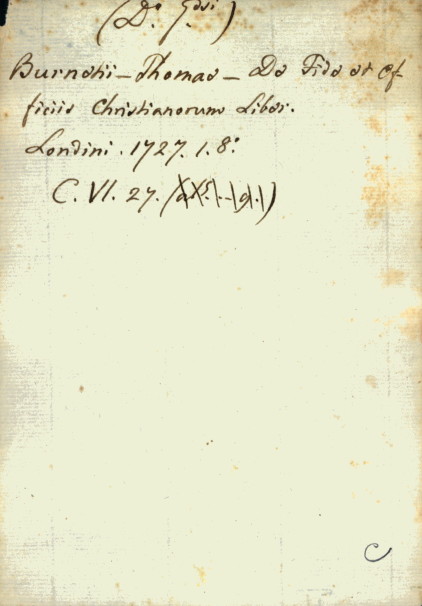 (D.º
Burnetii – Thomae – De Fide et Of-
ficiis Christianorum Liber.
Londini. 1727. 1. 8.º
C. VI. 27.
C